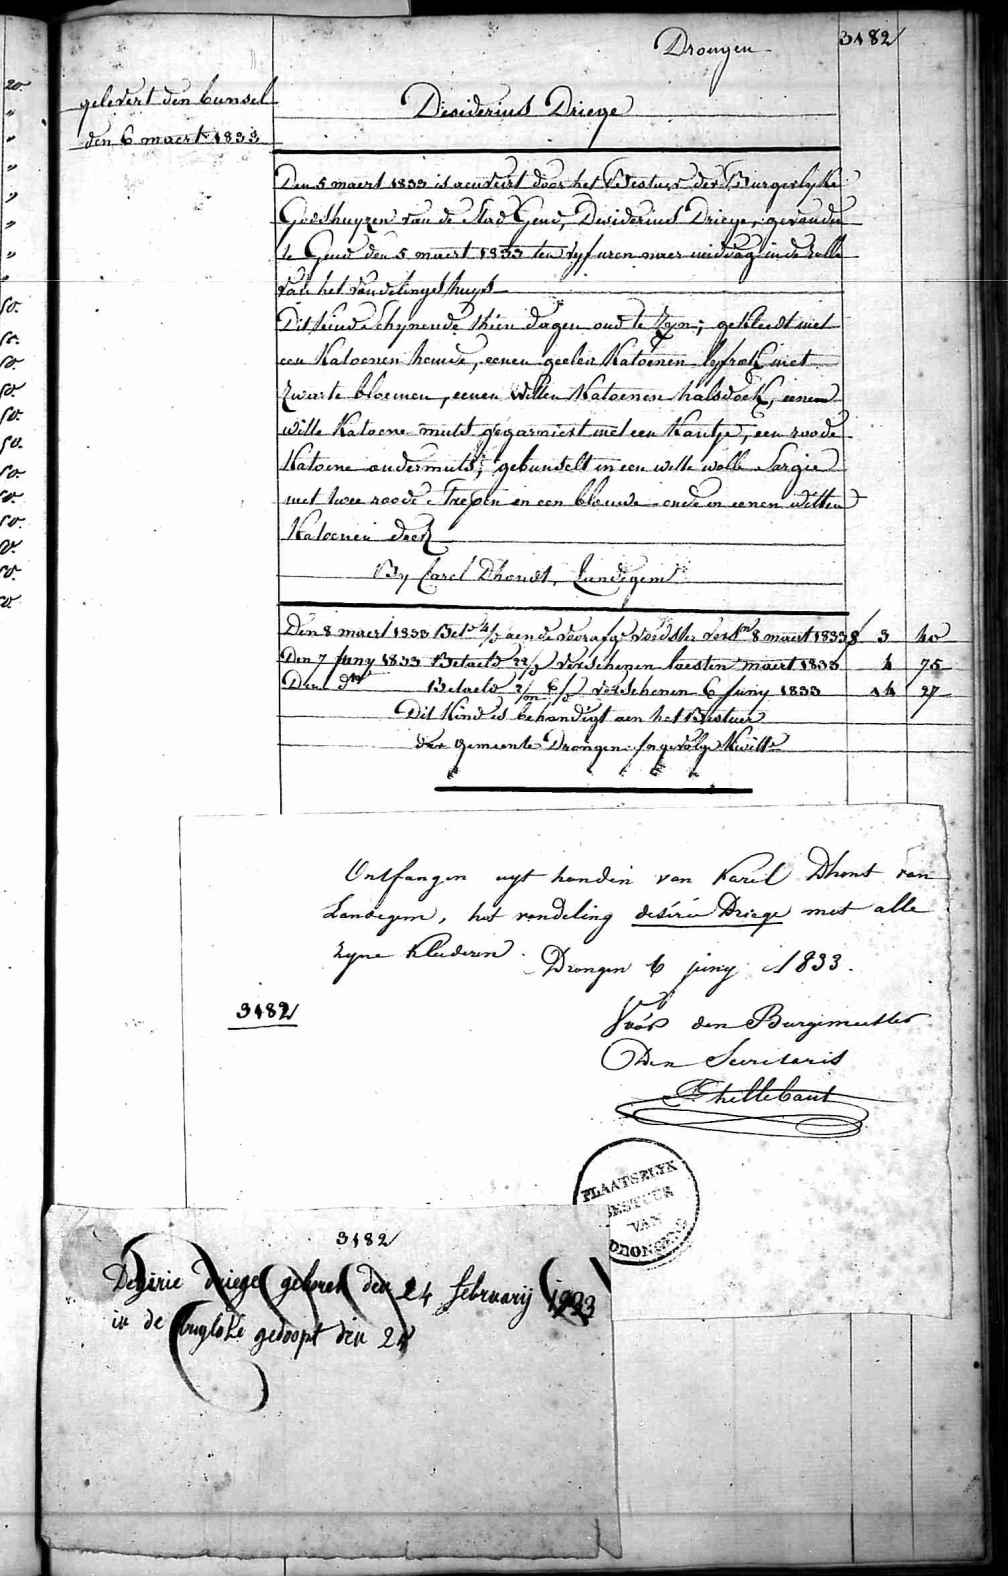 Drongen
3182
gelevert den bunsel
den 6 maert 1833
Disiderius Driege
Den 5 maert 1833 is acuveirt door het Bestuer der Burgerlyke
Godshuyzen van de Stad Gend, Disiderius Driege, gevonden
te Gend den 5 maert 1833 ten vyf uren naer middag in de rolle
van het Vondelingshuys
Dit kind schynende thien dagen oud te zyn; gekleedt met
een Katoenen hemde, eenen geelen Katoenen lyfrok met
zwarte bloemen, eenen witten Katoenen halsdoek, eene
witte Katoene muts gegarniert met een Kantje, een roode
Katoene ondermuts, gebunselt in een witte wolle Sargie
met twee roode Strepen en een blauwe ende in eenen witten
Katoenen doek
By Carel Dhondt, Landegem
Den 8 maert 1833 aen de voorafge Voedster 8 maert 1833 3 40
Den 7 Juny 1833 Betaeld verschenen laesten maert 1833 4 75
Den do Betaeld verschenen 6 Juny 1833 14 27
Dit Kind is behandigt aen het Bestuer
der gemeente Drongen ingevolge Kwitte
Ontfangen uyt handen van Karel Dhont van
Landegem, het vondeling desiré Driege met alle
zyne Kleederen. Drongen 6 juny 1833.
3182
Voor den Burgemeester
Den Secretaris
PLAATSELYK
BESTUUR
VAN
DRONGEN
3182
Dezirie driege geboren den 24 february 1833
in de byloke gedoopt den 24